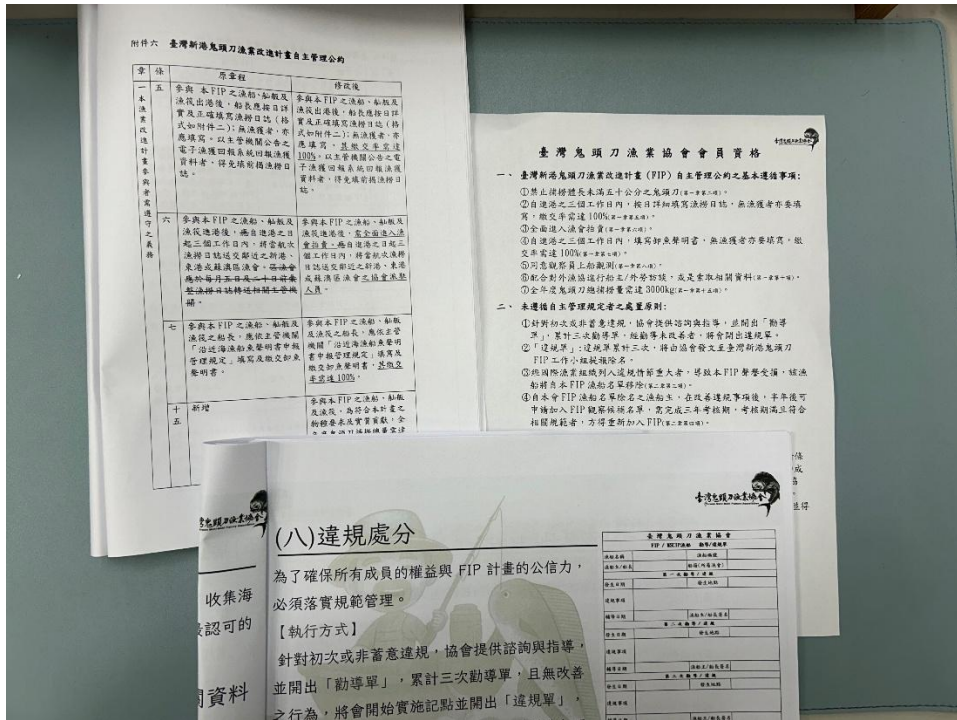 附件六 臺灣新港鬼頭刀漁業改進計畫自主管理公約
章 條 原章程 修改後
一本漁業改進計畫參與者需遵守之義務
五
參與本FIP之漁船、舢舨及
漁筏出港後，船長應按日詳
實及正確填寫漁撈日誌（格
式如附件二）；無漁獲者，亦
應填寫。以主管機關公告之
電子漁獲回報系統回報漁獲
資料者，得免填前揭漁撈日
誌。
參與本FIP之漁船、舢舨及
漁筏出港後，船長應按日詳
實及正確填寫漁撈日誌（格
式如附件二）；無漁獲者，亦
應填寫，其繳交率需達
100%。以主管機關公告之電
子漁獲回報系統回報漁獲
資料者，得免填前揭漁撈日
誌。
六
參與本FIP之漁船、舢舨及
漁筏進港後，應自進港之日
起三個工作日內，將當航次
漁撈日誌送交鄰近之新港、
東港或蘇澳區漁會。區漁會
應於每月五日及二十日前彙
整漁撈日誌轉送相關主管機
關。
參與本FIP之漁船、舢舨及
漁筏進港後，需全面進入漁
會拍賣。應自進港之日起三
個工作日內，將當航次漁撈
日誌送交鄰近之新港、東港
或蘇澳區漁會之協會派駐
人員。
七
參與本FIP之漁船、舢舨
及漁筏之船長，應依主管機關
「沿近海漁船魚聲明書申報
管理規定」填寫及繳交卸魚
聲明書。
參與本FIP之漁船、舢舨
及漁筏之船長，應依主管
機關「沿近海漁船魚聲明
書申報管理規定」填寫及
繳交卸魚聲明書，其繳交
率需達100%。
十五
新增
參與本FIP之漁船、舢舨
及漁筏，為符合本計畫之
物種要求及實質貢獻，全
臺灣鬼頭刀漁業協會
臺灣鬼頭刀漁業協會會員資格
一、 臺灣新港鬼頭刀漁業改進計畫（FIP）自主管理公約之基本遵循事項：
①禁止捕撈體長未滿五十公分之鬼頭刀(第一章第二項)。
②自進港之三個工作日內，按日詳細填寫漁撈日誌，無漁獲者亦要填
寫，繳交率需達100%(第一章第五項)。
③全面進入漁會拍賣(第一章第六項)。
④自進港之三個工作日內，填寫卸魚聲明書，無漁獲者亦要填寫。繳
交率需達100%(第一章第七項)。
⑤同意觀察員上船觀測(第一章第八項)。
⑥配合對外漁協進行船主/件勞訪談，或是索取相關資料
⑦全年度鬼頭刀總捕撈量需達3000kg(第一章第十五項)。
二、 未遵循自主管理規定者之處置原則：
①針對初次或非蓄意違規，協會提供諮詢與指導，並開出「勸導
單」，累計三次勸導單，經勸導未改善者，將會開出違規單。
②「違規單」：違規單累計三次，將由協會發文至臺灣新港鬼頭刀
FIP工作小組提報除名。
③經國際漁業組織列入違規情節重大者，導致本FIP聲譽受損，該漁
船將自本FIP漁船名單移除(第二章第二項)。
④自本會FIP漁船名單除名之漁船主，在改善違規事項後，半年後可
申請加入FIP觀察候補名單，需完成三年考核期，考核期滿且符合
相關規範者，方得重新加入FIP(第二章第四項)。
臺灣鬼頭刀漁業協會
收集海
認可的
資料
臺灣鬼頭刀漁業協會
(八)違規處分
為了確保所有成員的權益與FIP計畫的公信力，
必須落實規範管理。
【執行方式】
針對初次或非蓄意違規，協會提供諮詢與指導，
並開出「勸導單」，累計三次勸導單，且無改善
之行為，將會開始實施記點並開出「違規單」，
臺灣鬼頭刀漁業協會
漁船名稱 漁船編號
漁船主/船長
第一次勸導/違規
發生日期 發生地點
違規事項
輔導日期 漁船主/船長簽名
第二次勸導/違規
發生日期 發生地點
違規事項
輔導日期 漁船主/船長簽名
第三次勸導/違規
發生日期 發生地點
違規事項